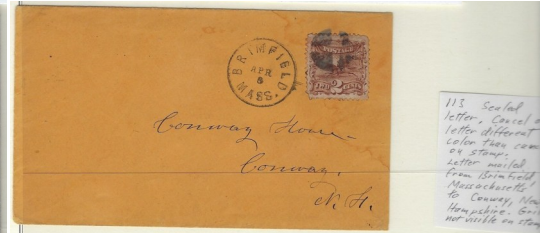 BRIMFIELD.
APR
8
MASS.
POSTAGE
2 CENTS
Conway House
Conway,
N. H.
113 Sealed
letter. Cancel o
letter different
color than canc
on stamp.
Letter mailed
from Brimfield
Massachusetts
to Conway, New
Hampshire. Gri
not visible on stam